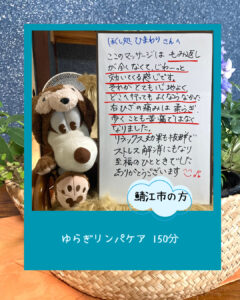 ほぐし処 ひまわり さんの
このマッサージは もみ返し
が全くなくて、じわーっと
効いてくる感じです。
それが とても心地よく
どこへ行っても よくならなかった
右ひざの痛みは 柔らぎ
歩くことも苦痛ではなく
なりました。
リラックス効果も抜群で
ストレス解消にもなり
至福のひとときでした
ありがとうございます
鯖江市の方
ゆらぎリンパケア 150分